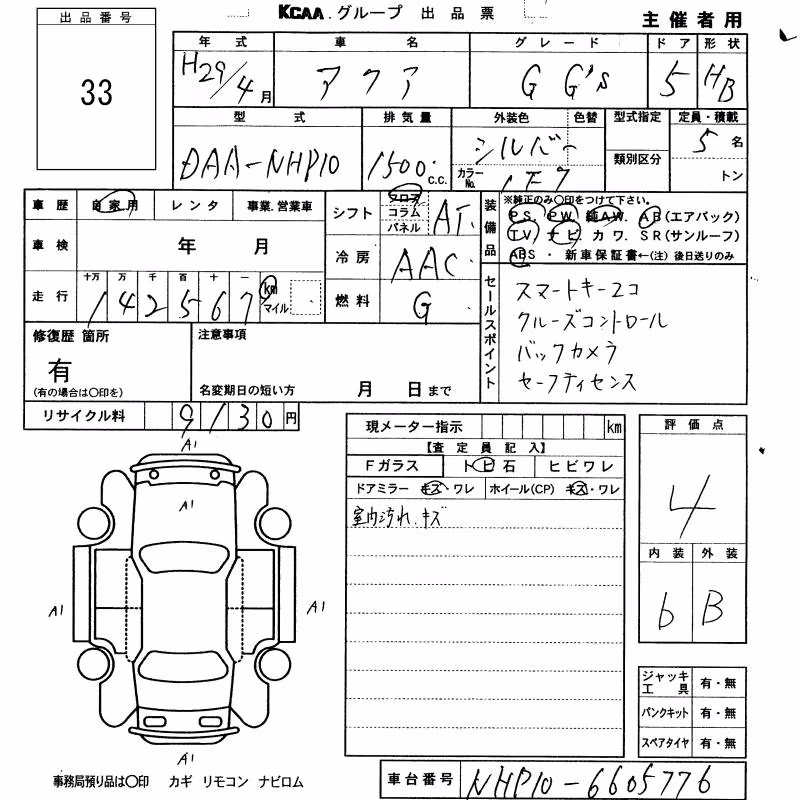 出品番号
33
KCAA.グループ 出品票
主催者用
年式 車名 グレード ドア 形状
H29/4月 アクア G G's 5 HB
型式 排気量 外装色 色替 型式指定 定員・積載
DAA-NHP10 1500 C.C. シルバー 5名
カラーNo. 1F7 類別区分 トン
車歴 自家用 レンタ 事業.営業車
シフト フロア コラム パネル AT
車検 年 月
冷房 AAC
走行 十万 万 千 百 十 一
142567 km マイル
燃料 G
装備品
※純正のみ〇印をつけて下さい。
PS. PW. 純AW. AB(エアバック)
TV ナビ. カワ. SR(サンルーフ)
ABS ・ 新車保証書←(注) 後日送りのみ
セールスポイント
スマートキー2コ
クルーズコントロール
バックカメラ
セーフティセンス
修復歴 箇所
有
(有の場合は〇印を)
注意事項
名変期日の短い方 月 日まで
リサイクル料 9130円
現メーター指示 km
【査定員記入】
Fガラス トビ石 ヒビワレ
ドアミラー キズ・ワレ ホイール(CP) キズ・ワレ
室内汚れ.キズ
評価点
4
内装 外装
b B
A1
A1
A1
A1
A1
ジャッキ工具 有・無
パンクキット 有・無
スペアタイヤ 有・無
事務局預り品は〇印 カギ リモコン ナビロム
車台番号 NHP10-6605776